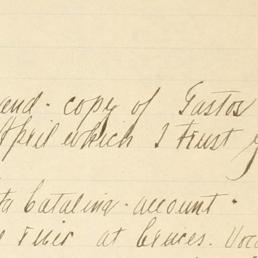 end - copy of Gastos
April which I trust
Catalina - account -
at Cruces.